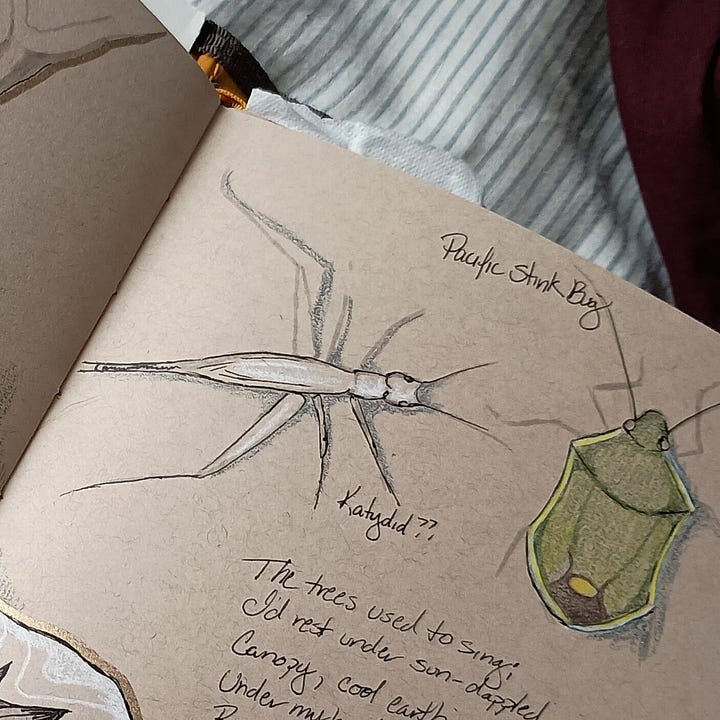 Pacific Stink Bug
Katydid??
The trees used to sing;
I'd rest under sun-dappled
Canopy, cool earth
Under